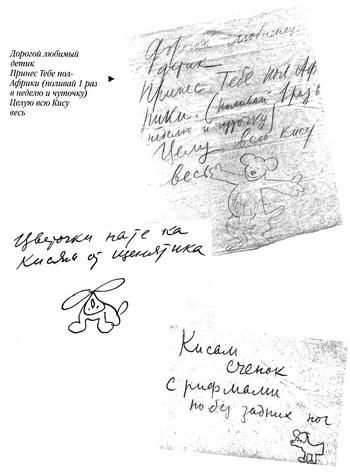 Дорогой любимый
детик
Принес Тебе пол-
Африки (поливай 1 раз
в неделю и чуточку)
Целую всю Кису
весь
Дорогой любимый
детик
Принес Тебе пол Аф
рики. (поливай 1 раз в
неделю и чуточку)
Целу всю кису
весь
Цветочки нате ка
Кисям от щенятика
Кисам
сченок
с рифмами
но без задних ног